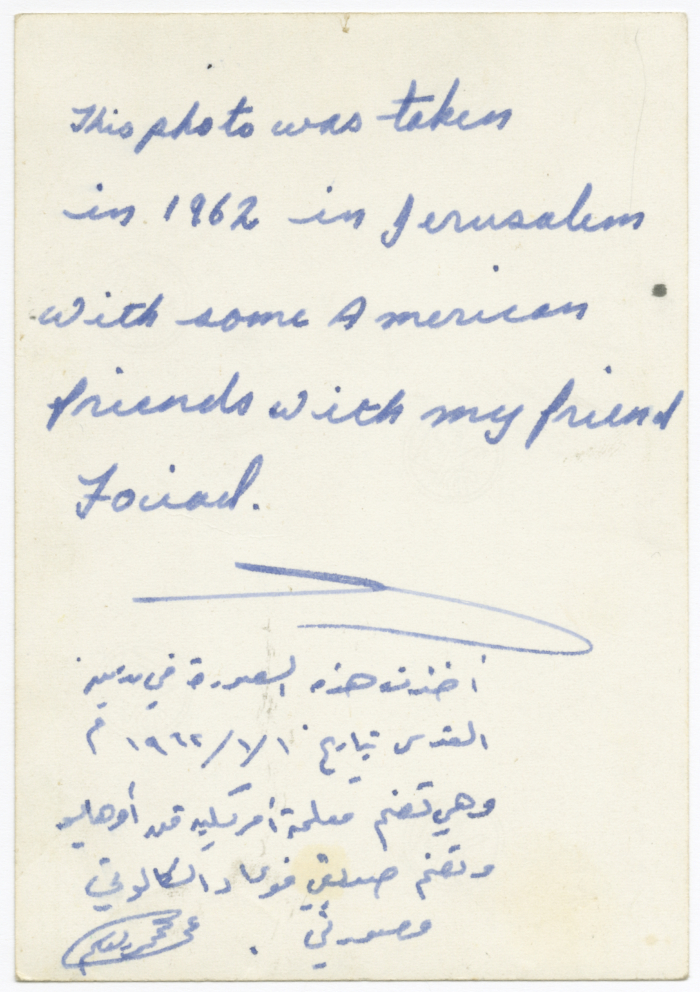 This photo was taken
in 1962 in Jerusalem
with some American
friends with my friend
Fouad.
أخذت هذه الصورة في مدينة
القدس بتاريخ ١/١/١٩٦٢ م
وهي تضم معلمة أمريكية من أوهايو
وتضم صديقي فوءاد
وصورتي